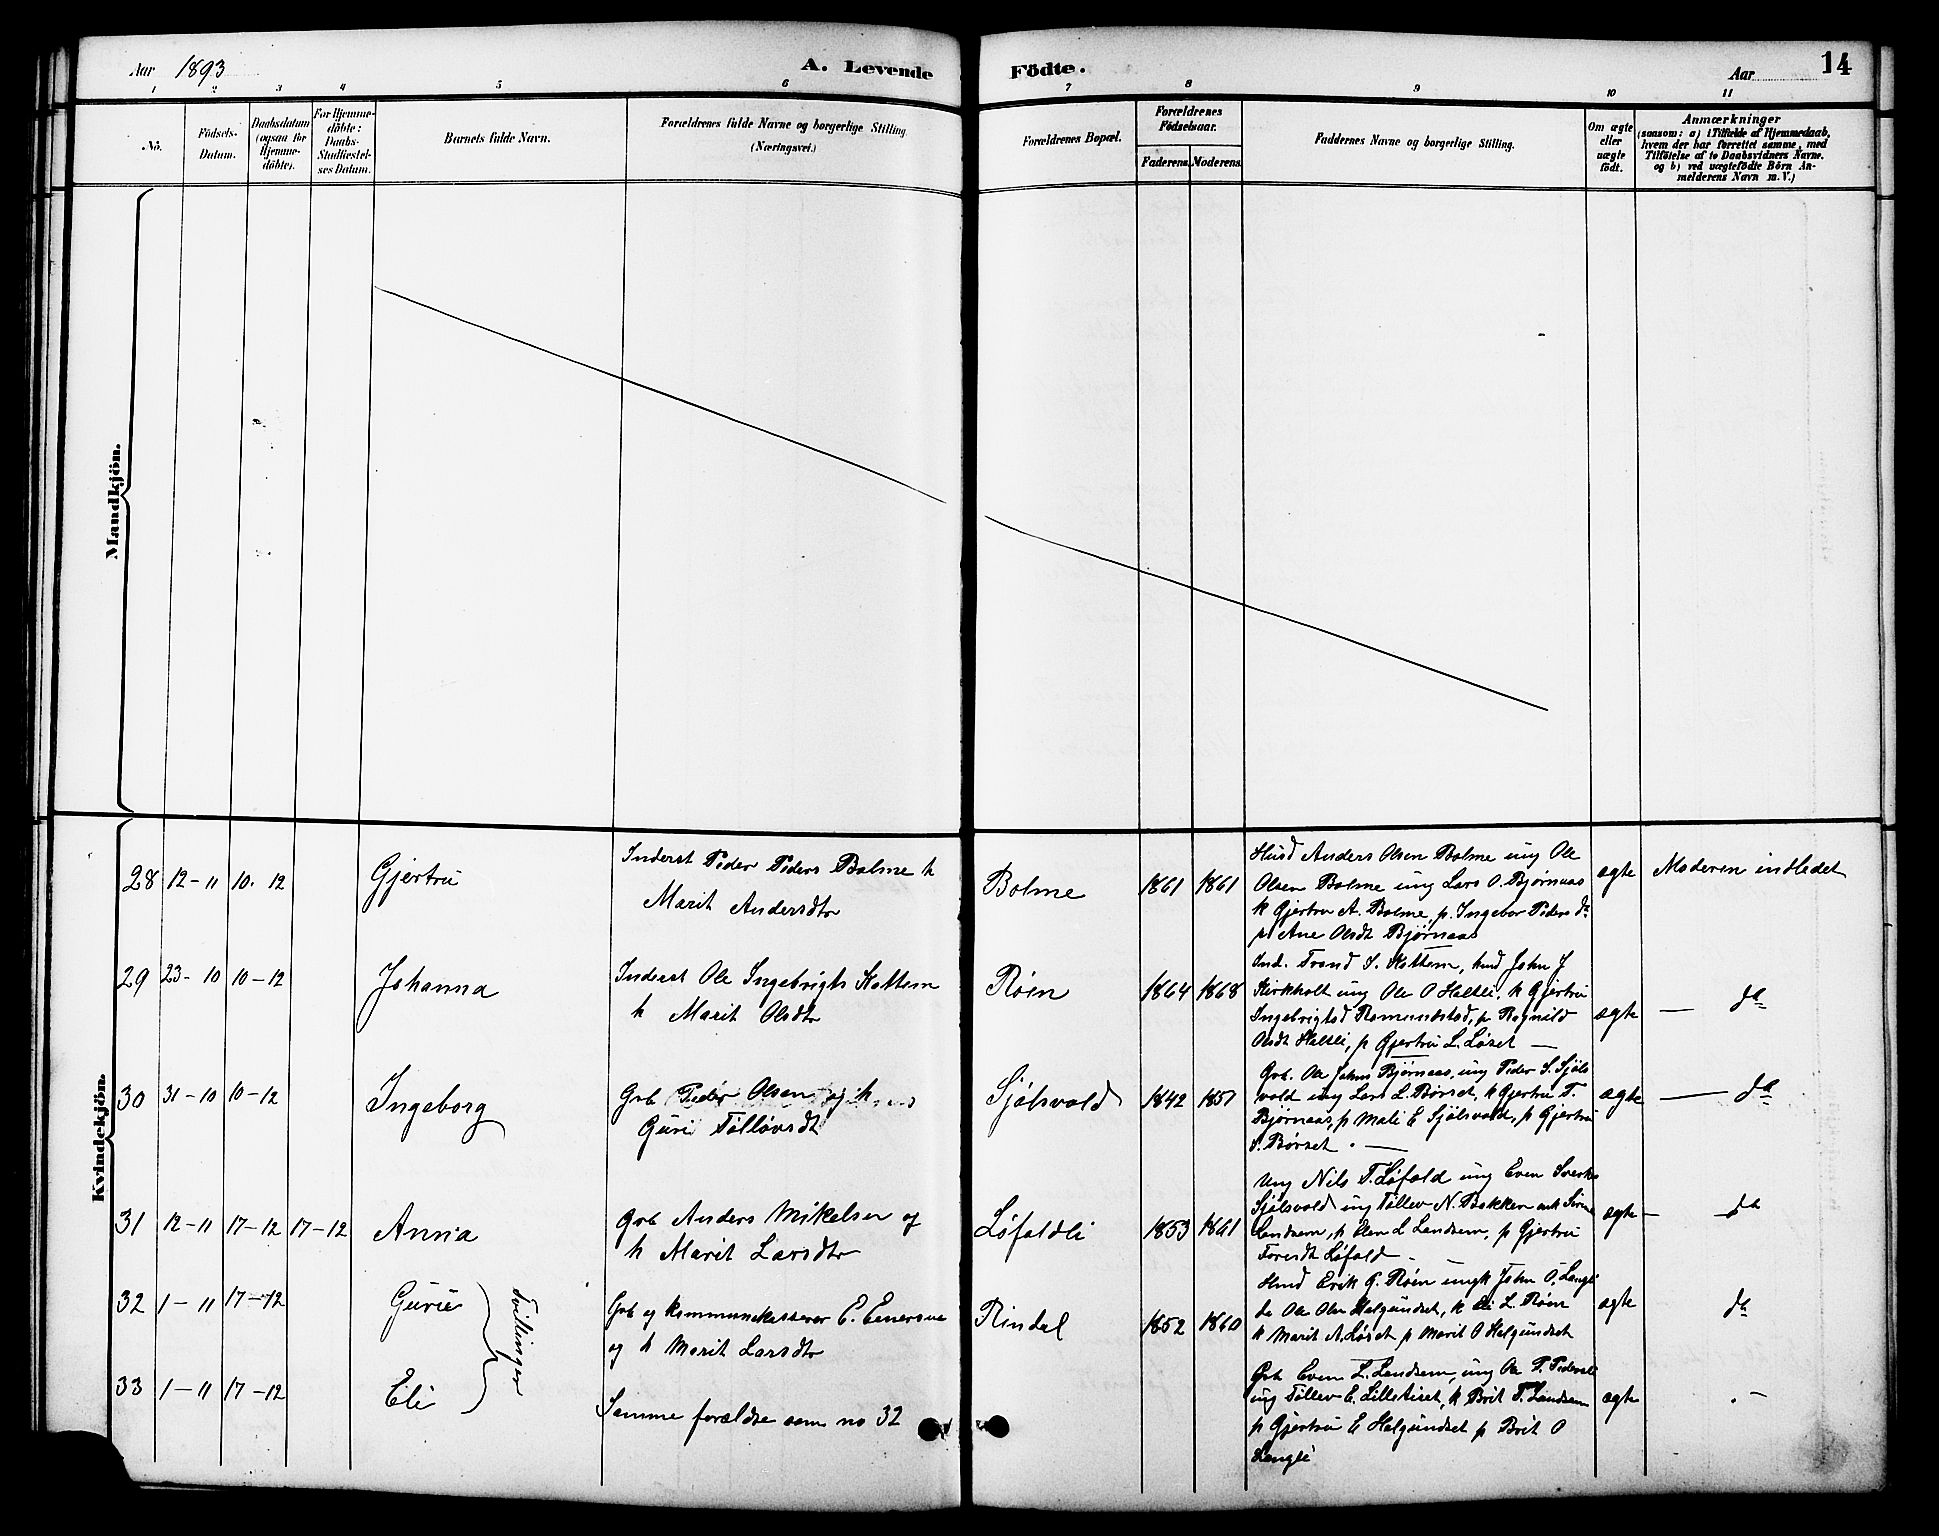 Aar 1893
A. Levende Födte.
Aar
14
1
2
3
4
5
6
7
8
9
10
11
No.
Födsels-
Datum.
Daabsdatum
(ogsaa for
Hjemme-
döbte).
For Hjemme-
döbte:
Daabs-
Stadfæstel-
ses Datum.
Barnets fulde Navn.
Forældrenes fulde Navne og borgerlige Stilling
(Næringsvei.)
Forældrenes Bopæl.
Forældrenes
Födselsaar.
Faderens.
Moderens.
Faddernes Navne og borgerlige Stilling.
Om ægte
eller
uægte
födt.
Anmærkninger
(saasom: a) i Tilfælde af Hjemmedaab,
hvem der har forrettet samme, med
Tilföielse af to Daabsvidners Navne,
og b) ved uægtefödte Börn An-
melderens Navn m. V.)
Mandkjön.
Kvindekjön.
28
12-11
10. 12
Gjertru
Inderst Peder Peders Bolme h
Marit Andersdtr
Bolme
1861
1861
Husd Anders Olsen Bolme ung Ole
Olsen Bolme ung Lars O. Bjørnaas
k Gjertru A. Bolme, p. Ingebor Peders da
p. Ane Olsdt Bjørnaas
ægte
Moderen indledet
29
23-10
10-12
Johanna
Inderst Ole Ingebrigts Kattem
h Marit Olsdtr
Røen
1864
1868
Ind. Trond I. Kattem, husd John J
Kirkholt ung Ole O Haltli, k Gjertru
Ingebrigtsd Romundstad, p Ragnild
Olsdt Haltli, p Gjertru L. Løset —
ægte
— da
30
31-10
10-12
Ingeborg
Grb Peder Olsen og h
Guri Tølløvsdt
Sjølsvold
1842
1857
Grb. Ole Johns Bjørnaas, ung Peder S. Sjøls
vold ung Lars L. Børset, k Gjertru T.
Bjørnaas, p Mali E Sjølsvold, p Gjertru
S. Børset. —
ægte
— da
31
12-11
17-12
17-12
Anna
Grb Anders Mikelsen og
h Marit Larsdtr
Løfaldli
1853
1861
Ung Nils T. Løfald ung Even
Sjølsvold ung Tøllev N. Bakken
Landsem, k Elen L Landsem, p Gjertru
Løfald —
ægte
— da
32
1-11
17-12
Gurie
Tvillinger
Grb og kommunekasserer E. Einersen
og h Marit Larsdtr
Rindal
1852
1860
Husd Erik G. Røen ungk John O. Langli
da Ole Olsn Halgundset, k Eli L. Røen
k Marit A. Løset p Marit O Halgundset
ægte
da
33
1-11
17-12
Eli
Samme forældre som no 32
Grb Even L. Landsem, ung Ole P.
ung Tøllev E. Lilletiset, k Brit T. Landsem
p Gjertru E Halgundset p Brit O
Langli
ægte